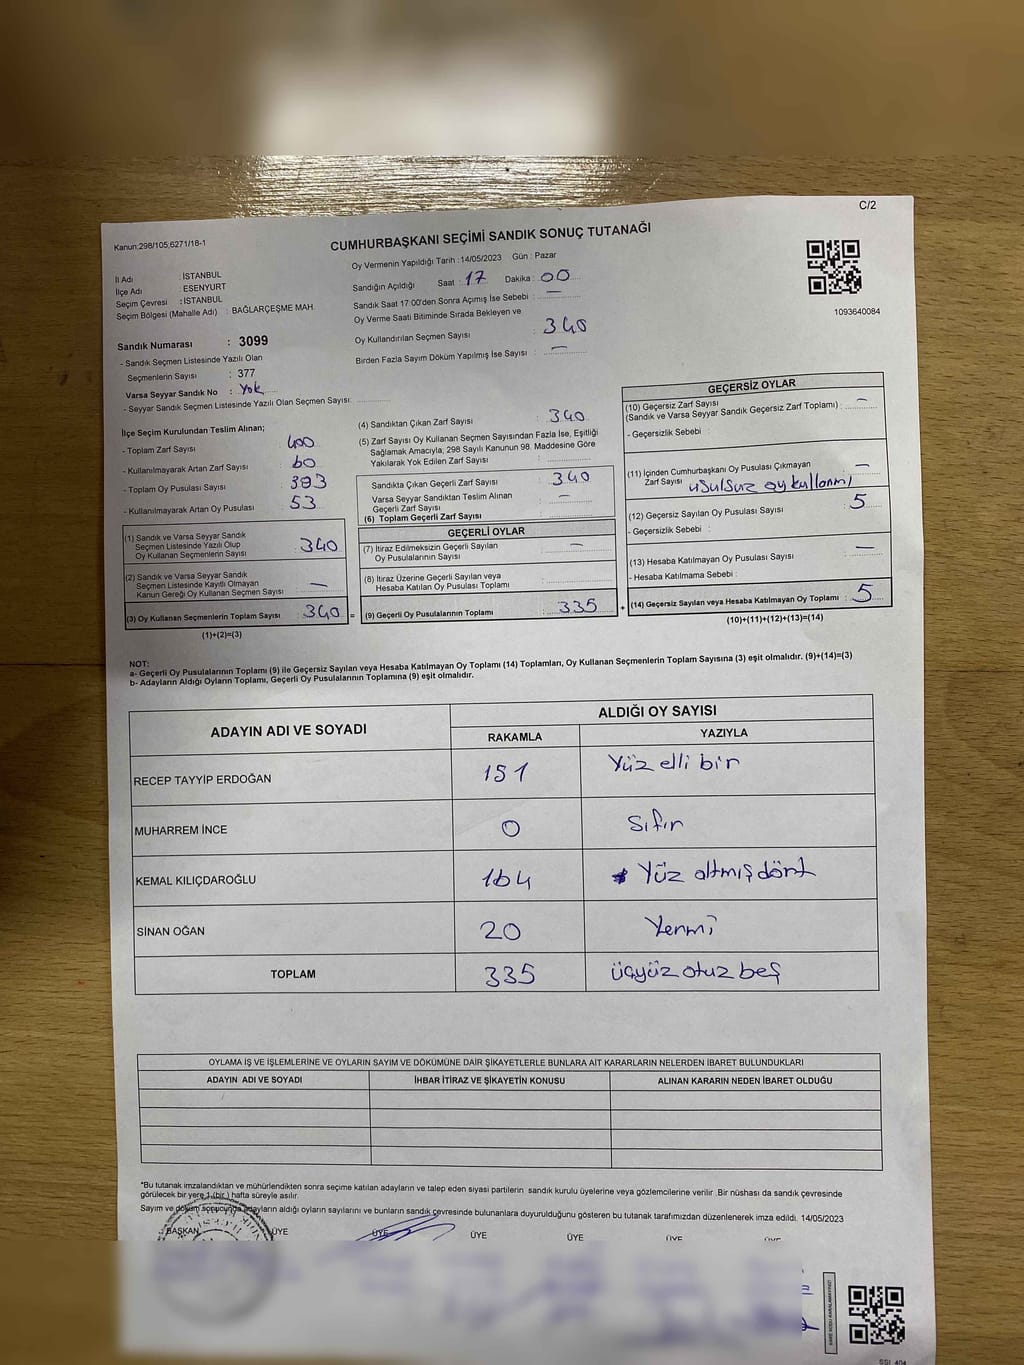 C/2
Kanun:298/105;6271/18-1
CUMHURBAŞKANI SEÇİMİ SANDIK SONUÇ TUTANAĞI
Oy Vermenin Yapıldığı Tarih :14/05/2023 Gün : Pazar
İl Adı : İSTANBUL
İlçe Adı : ESENYURT
Seçim Çevresi : İSTANBUL
Seçim Bölgesi (Mahalle Adı) : BAĞLARÇEŞME MAH
Sandığın Açıldığı Saat : 17 Dakika : 00
Sandık Saat 17:00'den Sonra Açımış İse Sebebi : —
Oy Verme Saati Bitiminde Sırada Bekleyen ve
Oy Kullandırılan Seçmen Sayısı : 340
Birden Fazla Sayım Döküm Yapılmış İse Sayısı : —
1093640084
Sandık Numarası : 3099
- Sandık Seçmen Listesinde Yazılı Olan
Seçmenlerin Sayısı : 377
Varsa Seyyar Sandık No : Yok
- Seyyar Sandık Seçmen Listesinde Yazılı Olan Seçmen Sayısı:
İlçe Seçim Kurulundan Teslim Alınan;
- Toplam Zarf Sayısı : 400
- Kullanılmayarak Artan Zarf Sayısı : 60
- Toplam Oy Pusulası Sayısı : 393
- Kullanılmayarak Artan Oy Pusulası : 53
(1) Sandık ve Varsa Seyyar Sandık
Seçmen Listesinde Yazılı Olup
Oy Kullanan Seçmenlerin Sayısı : 340
(2) Sandık ve Varsa Seyyar Sandık
Seçmen Listesinde Kayıtlı Olmayan
Kanun Gereği Oy Kullanan Seçmen Sayısı : —
(3) Oy Kullanan Seçmenlerin Toplam Sayısı : 340 =
(1)+(2)=(3)
(4) Sandıktan Çıkan Zarf Sayısı : 340
(5) Zarf Sayısı Oy Kullanan Seçmen Sayısından Fazla İse, Eşitliği
Sağlamak Amacıyla; 298 Sayılı Kanunun 98. Maddesine Göre
Yakılarak Yok Edilen Zarf Sayısı :
Sandıkta Çıkan Geçerli Zarf Sayısı : 340
Varsa Seyyar Sandıktan Teslim Alınan
Geçerli Zarf Sayısı : —
(6) Toplam Geçerli Zarf Sayısı :
GEÇERLİ OYLAR
(7) İtiraz Edilmeksizin Geçerli Sayılan
Oy Pusulalarının Sayısı : —
(8) İtiraz Üzerine Geçerli Sayılan veya
Hesaba Katılan Oy Pusulası Toplamı :
(9) Geçerli Oy Pusulalarının Toplamı : 335 +
GEÇERSİZ OYLAR
(10) Geçersiz Zarf Sayısı : —
(Sandık ve Varsa Seyyar Sandık Geçersiz Zarf Toplamı)
- Geçersizlik Sebebi :
(11) İçinden Cumhurbaşkanı Oy Pusulası Çıkmayan
Zarf Sayısı : —
usulsuz oy kullanmı
(12) Geçersiz Sayılan Oy Pusulası Sayısı : 5
- Geçersizlik Sebebi :
(13) Hesaba Katılmayan Oy Pusulası Sayısı : —
- Hesaba Katılmama Sebebi :
(14) Geçersiz Sayılan veya Hesaba Katılmayan Oy Toplamı : 5
(10)+(11)+(12)+(13)=(14)
NOT:
a- Geçerli Oy Pusulalarının Toplamı (9) ile Geçersiz Sayılan veya Hesaba Katılmayan Oy Toplamı (14) Toplamları, Oy Kullanan Seçmenlerin Toplam Sayısına (3) eşit olmalıdır. (9)+(14)=(3)
b- Adayların Aldığı Oyların Toplamı, Geçerli Oy Pusulalarının Toplamına (9) eşit olmalıdır.
ADAYIN ADI VE SOYADI
ALDIĞI OY SAYISI
RAKAMLA YAZIYLA
RECEP TAYYİP ERDOĞAN 151 Yüz elli bir
MUHARREM İNCE 0 Sıfır
KEMAL KILIÇDAROĞLU 164 Yüz altmış dört
SİNAN OĞAN 20 Yirmi
TOPLAM 335 üçyüz otuz beş
OYLAMA İŞ VE İŞLEMLERİNE VE OYLARIN SAYIM VE DÖKÜMÜNE DAİR ŞİKAYETLERLE BUNLARA AİT KARARLARIN NELERDEN İBARET BULUNDUKLARI
ADAYIN ADI VE SOYADI İHBAR İTİRAZ VE ŞİKAYETİN KONUSU ALINAN KARARIN NEDEN İBARET OLDUĞU
*Bu tutanak imzalandıktan ve mühürlendikten sonra seçime katılan adayların ve talep eden siyasi partilerin sandık kurulu üyelerine veya gözlemcilerine verilir .Bir nüshası da sandık çevresinde
görülecek bir yere 1 (bir ) hafta süreyle asılır.
Sayım ve döküm sonucunda adayların aldığı oyların sayılarını ve bunların sandık çevresinde bulunanlara duyurulduğunu gösteren bu tutanak tarafımızdan düzenlenerek imza edildi. 14/05/2023
BAŞKAN ÜYE ÜYE ÜYE ÜYE ÜYE ÜYE